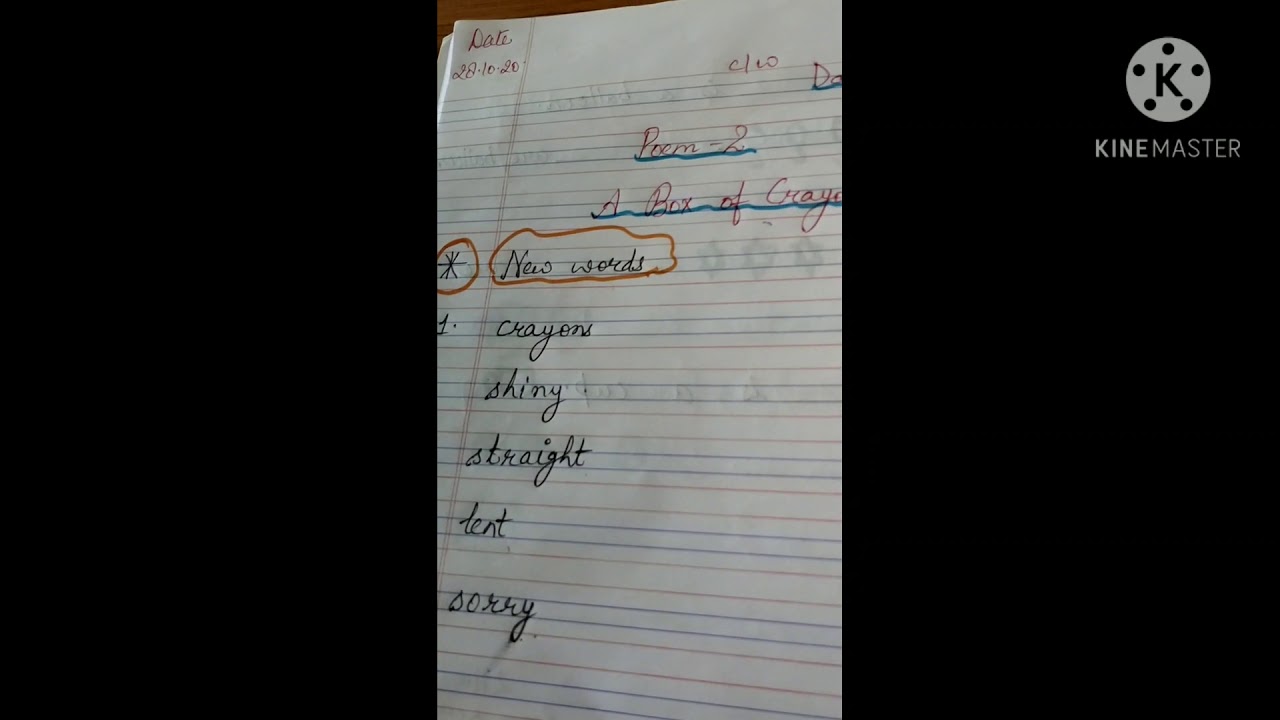 Date
28.10.20
c/w
Poem-2
A Box of
New words
1. crayons
shiny
straight
lent
sorry
KINEMASTER